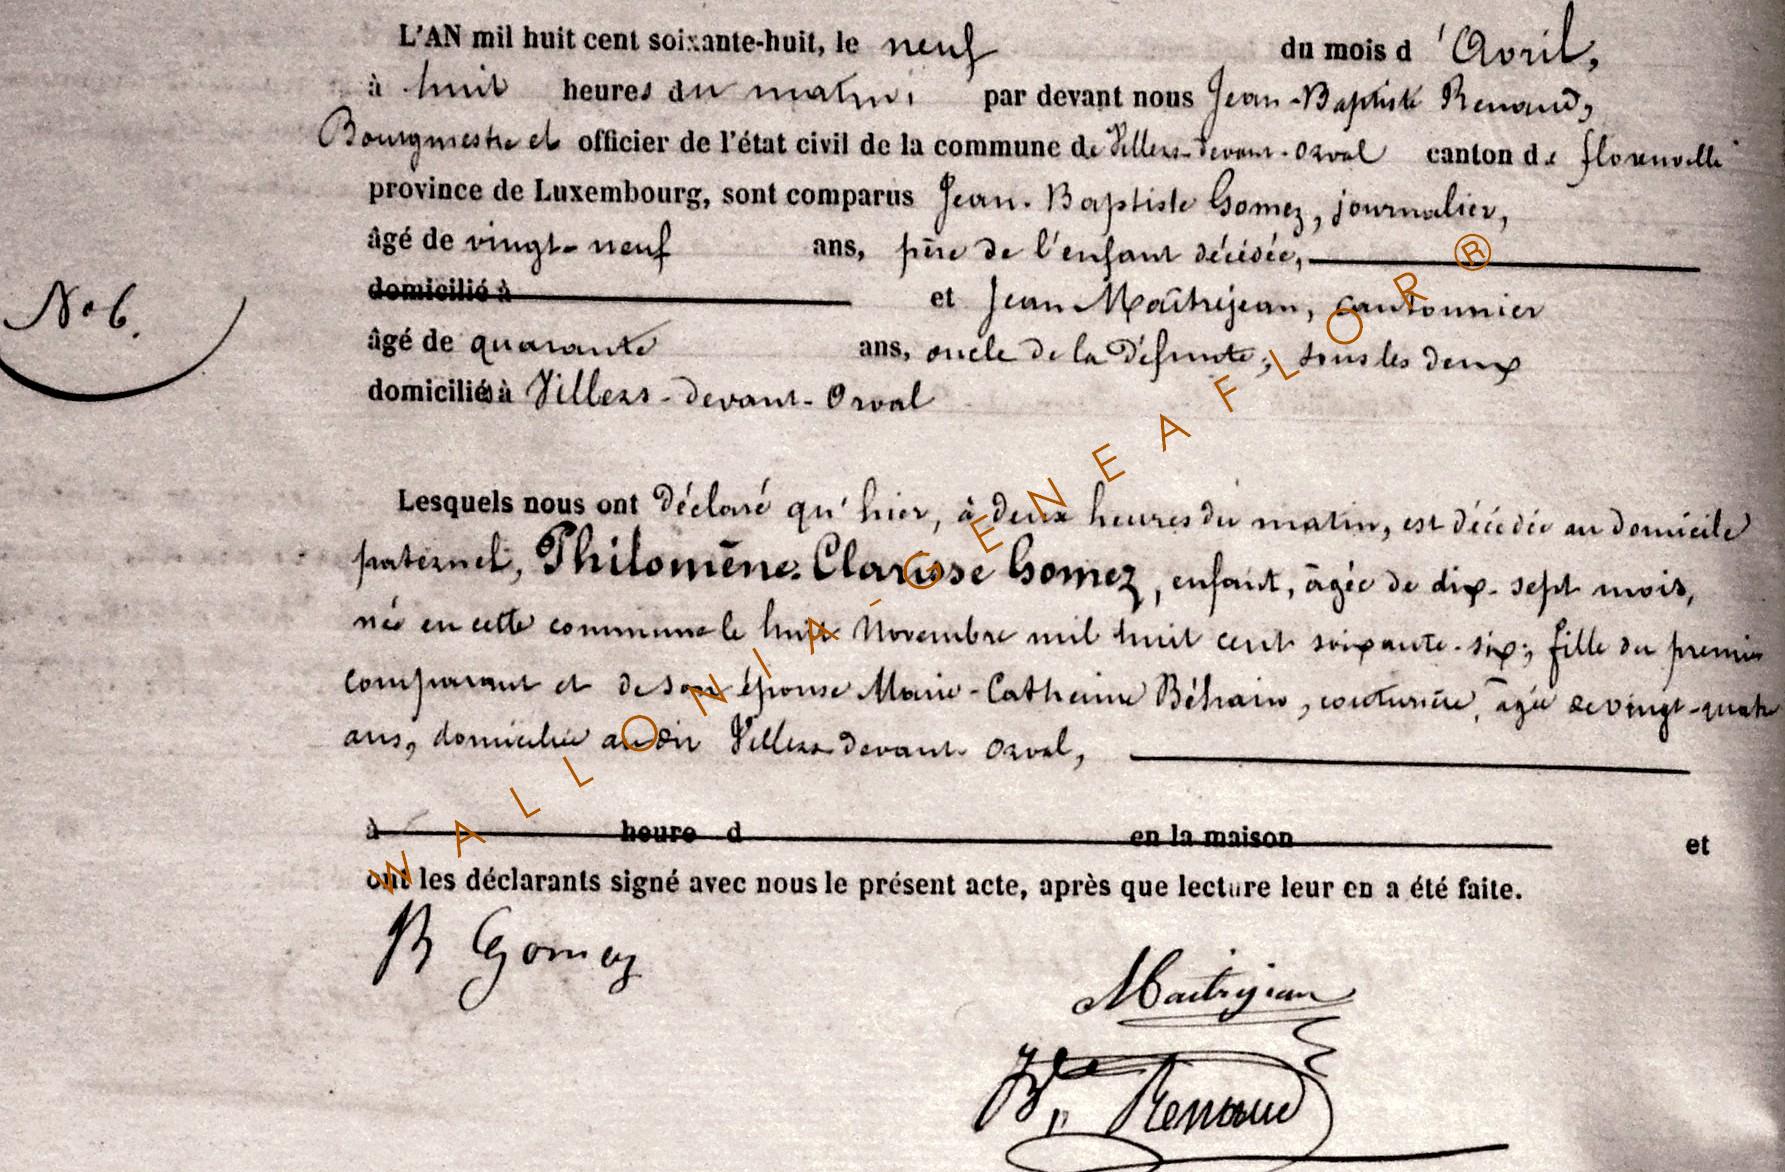 L'AN mil huit cent soixante-huit, le neuf du mois d'Avril,
à huit heures du matin, par devant nous Jean-Baptiste Renaud,
Bourgmestre et officier de l'état civil de la commune de Villers-devant-Orval canton de florenville
province de Luxembourg, sont comparus Jean-Baptiste Gomez, journalier,
âgé de vingt-neuf ans, père de l'enfant décédée,
domicilié à et Jean Maîtrejean, cantonnier
No 6.
âgé de quarante ans, oncle de la défunte; tous les deux
domiciliés à Villers-devant-Orval
Lesquels nous ont déclaré qu'hier, à deux heures du matin, est décédée au domicile
paternel, Philomène-Clarisse Gomez, enfant, âgée de dix-sept mois,
née en cette commune le huit Novembre mil huit cent soixante-six; fille du premier
comparant et de son épouse Marie-Catherine Béhain, couturière, âgée de vingt-quatre
ans, domiciliée au dit Villers-devant-Orval,
à heure d en la maison et
ont les déclarants signé avec nous le présent acte, après que lecture leur en a été faite.
B Gomez
Maitrejean
JBte Renaud
WALLONIA-GENEAFLOR®